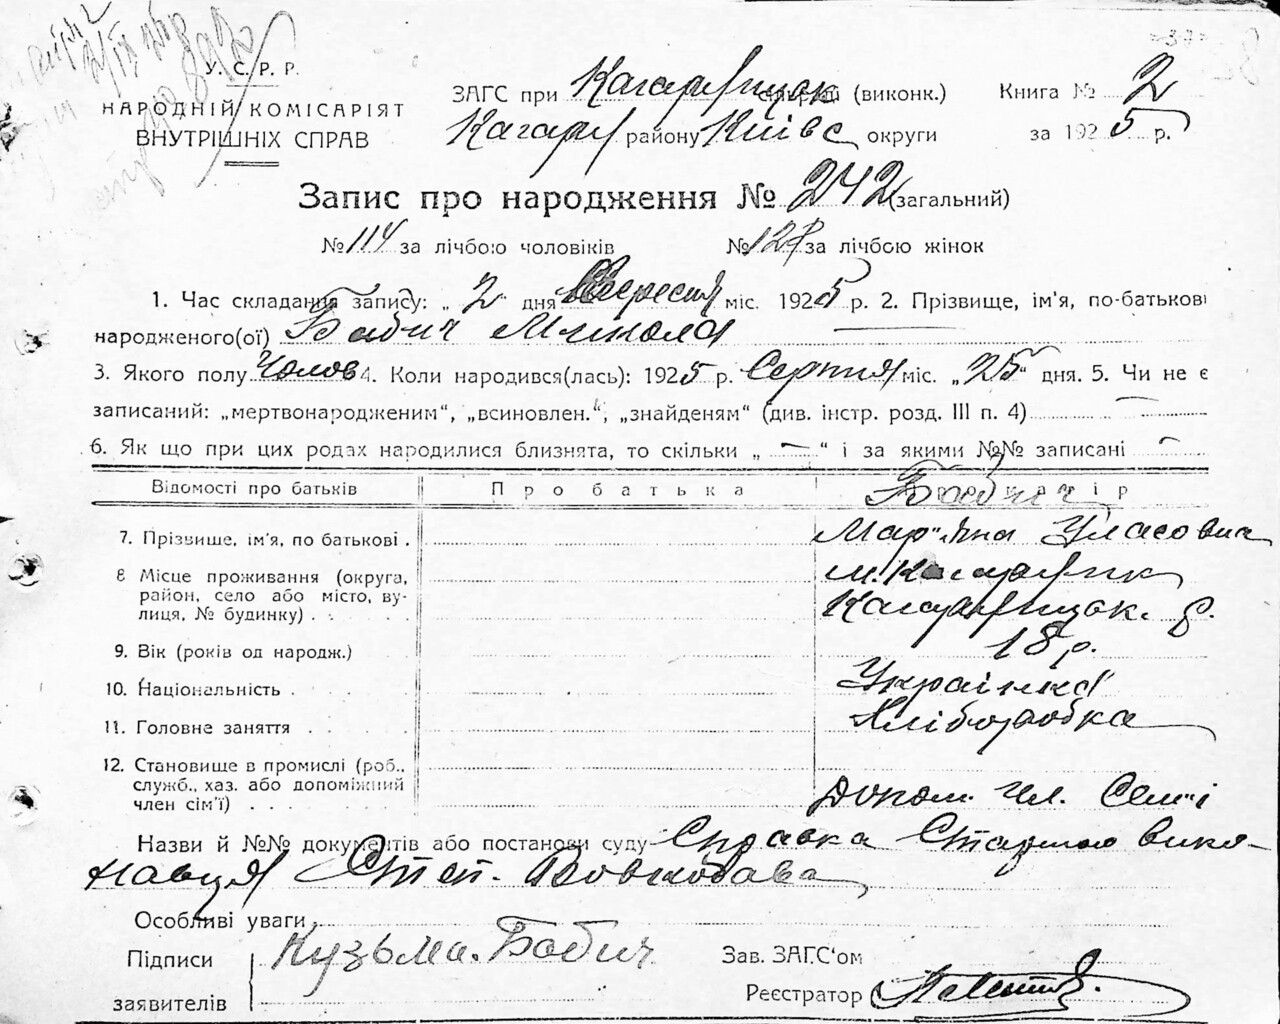 У.С.Р.Р.
НАРОДНІЙ КОМІСАРІЯТ
ВНУТРІШНІХ СПРАВ
ЗАГС при Кагарлицьк (виконк.) Книга № 2
Кагарл району Київс округи за 1925 р.
Запис про народження № 242 (загальний)
№ 114 за лічбою чоловіків № 128 за лічбою жінок
1. Час складання запису: „ 2 " дня Вересня міс. 1925 р. 2. Прізвище, ім'я, по-батькові
народженого(ої) Бабич Микола
3. Якого полу Чолов 4. Коли народився(лась): 1925 р. Серпня міс. „25" дня. 5. Чи не є
записаний: „мертвонародженим", „всиновлен.", „знайденям" (див. інстр. розд. III п. 4)
6. Як що при цих родах народилися близнята, то скільки „ — " і за якими №№ записані —
Відомості про батьків Про батька
7. Прізвище, ім'я, по батькові . Бабич
Мар'яна Уласовна
8 Місце проживання (округа, район, село або місто, вулиця, № будинку) . . м. Кагарлик
Кагарлицьк. р.
9. Вік (років од народж.) 18 р.
10. Національність . Українка
11. Головне заняття Хліборобка
12. Становище в промислі (роб., служб., хаз. або допоміжний член сім'ї) . . . Допом. чл. Семї
Назви й №№ документів або постанови суду Справка Старшого Вико-
навця Степ.
Особливі уваги
Підписи Кузьма. Бабич Зав. ЗАГС'ом
заявителів Реєстратор